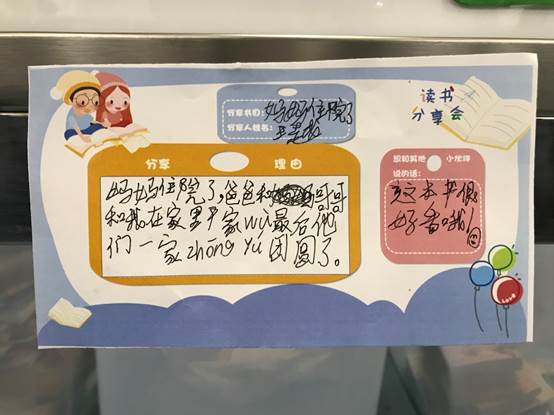 读书
分享会
分享书目：妈妈住院了
分享人姓名：
分享 理由
妈妈住院了，爸爸和哥哥
和我在家里干家wù最后他
们一家zhōng yú团圆了。
想和其他小伙伴
说的话：
这本书很
好看哦！
Love